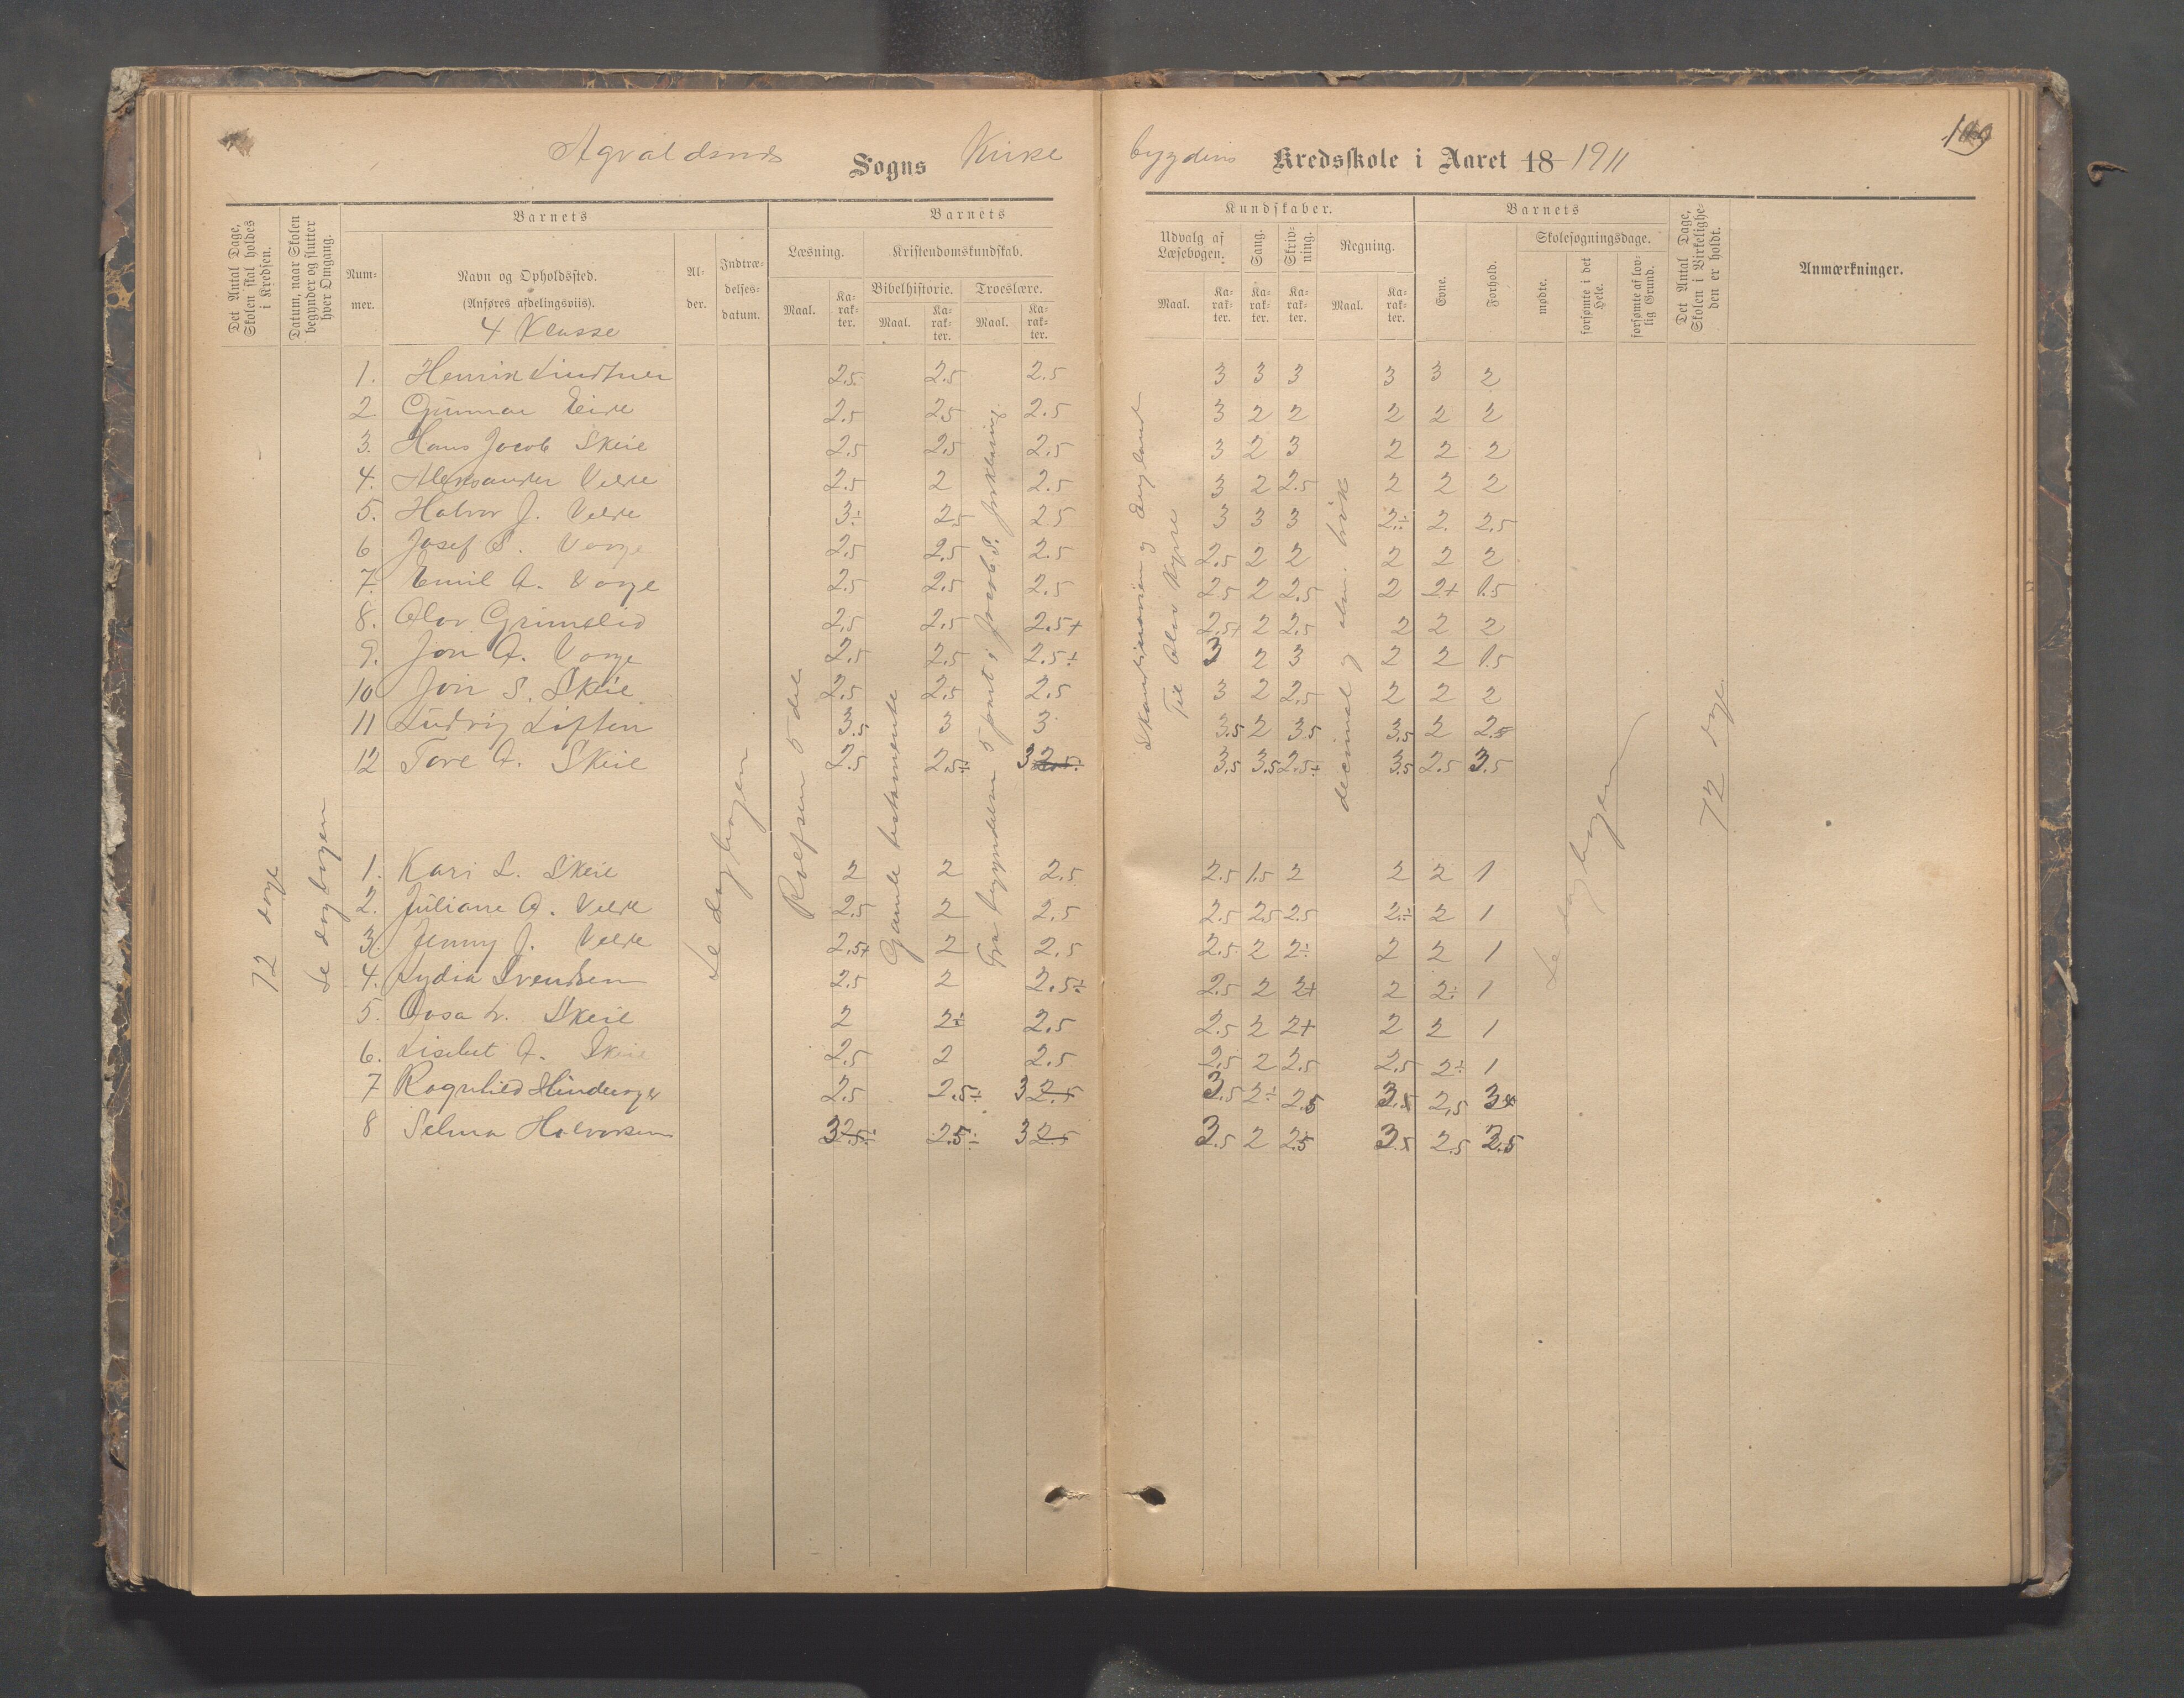 Sogns Kirke
bygdens Kredsskole i Aaret 18 1911
109
Det Antal Dage, Skolen skal holdes i Kredsen.
Datum, naar Skolen begynder og slutter hver Omgang.
Barnets
Num-mer.
Navn og Opholdssted.
(Anføres afdelingsviis).
4 Klasse
Al-der.
Indtræ-delses-datum.
Barnets
Læsning.
Maal.
Ka-rak-ter.
Kristendomskundskab.
Bibelhistorie.
Maal.
Ka-rak-ter.
Troeslære.
Maal.
Ka-rak-ter.
Kundskaber.
Udvalg af Læsebogen.
Maal.
Ka-rak-ter.
Sang.
Ka-rak-ter.
Skriv-ning.
Ka-rak-ter.
Regning.
Maal.
Ka-rak-ter.
Barnets
Evne.
Forhold.
Skolesøgningsdage.
mødte.
forsømte i det Hele.
forsømte af lov-lig Grund.
Det Antal Dage, Skolen i Virkelighe-den er holdt.
Anmærkninger.
1. Henrik Lindtner 2.5 2.5 2.5 3 3 3 3 3 2
2 Gunnar Eide 2.5 2.5 2.5 3 2 2 2 2 2
3. Hans Jacob Skeie 2.5 2.5 2.5 3 2 3 2 2 2
4. Aleksander Velde 2.5 2 2.5 3 2 2.5 2 2 2
5. Halvor J. Velde 3÷ 2.5 2.5 3 3 3 2÷ 2 2.5
6 Josef S. Vorge 2.5 2.5 2.5 2.5 2 2 2 2 2
7. Emil A. Vorge 2.5 2.5 2.5 2.5 2 2.5 2 2+ 1.5
8. Olav Grimslid 2.5 2.5 2.5+ 2.5+ 2 2.5 2 2 2
9. Jon A. Vorge 2.5 2.5 2.5÷ 3 2 3 2 2 1.5
10 Jon S. Skeie 2.5 2.5 2.5 3 2 2.5 2 2 2
11 Ludvig 3.5 3 3 3.5 2 3.5 3.5 2 2.5
12 Tore A. Skeie 2.5 2.5÷ 3 2.5÷ 3.5 3.5 2.5+ 3.5 2.5 3.5
1. Kari L. Skeie 2 2 2.5 2.5 1.5 2 2 2 1
2. Juliane A. Velde 2.5 2 2.5 2.5 2.5 2.5 2÷ 2 1
3. Jenny J. Velde 2.5+ 2 2.5 2.5 2 2÷ 2 2 1
4. Lydia Svendsen 2.5 2 2.5÷ 2.5 2 2+ 2 2÷ 1
5. L. Skeie 2 2÷ 2.5 2.5 2 2+ 2 2 1
6. Lisebet A. Skeie 2.5 2 2.5 2.5 2 2.5 2.5 2÷ 1
7 Ragnhild 2.5 2.5÷ 3 2.5 3.5 2÷ 2.5 3.5 2.5 3
8 Selma Halvorsen 3 2.5÷ 2.5÷ 3 2.5 3.5 2 2.5 3.5 2.5 2.5
72 dage
Se dagbogen
Se dagbogen
Rolfsen 5 del
Gamle testamente
Fra begyndelsen 5 part i Jacob S. forklaring.
Skandinavien og England
Til Olav Kyrre
decimal og alm. brøk
Se dagbogen
72 dage.